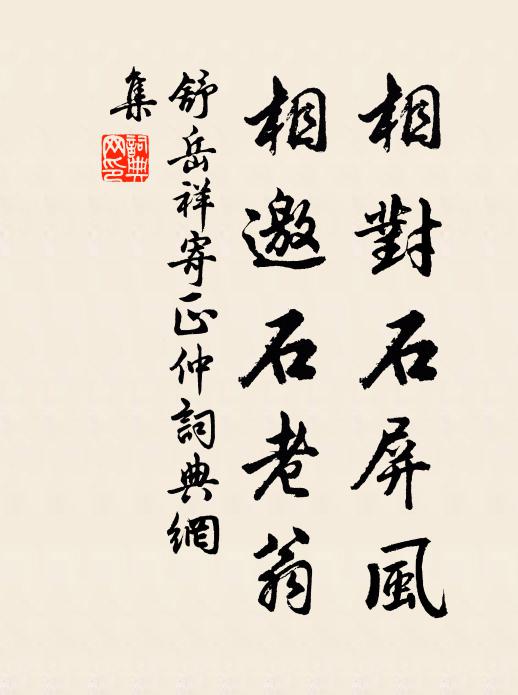 相對石屏風
相邀石老翁
舒岳祥寄正仲詞典網
集
詞典
网印